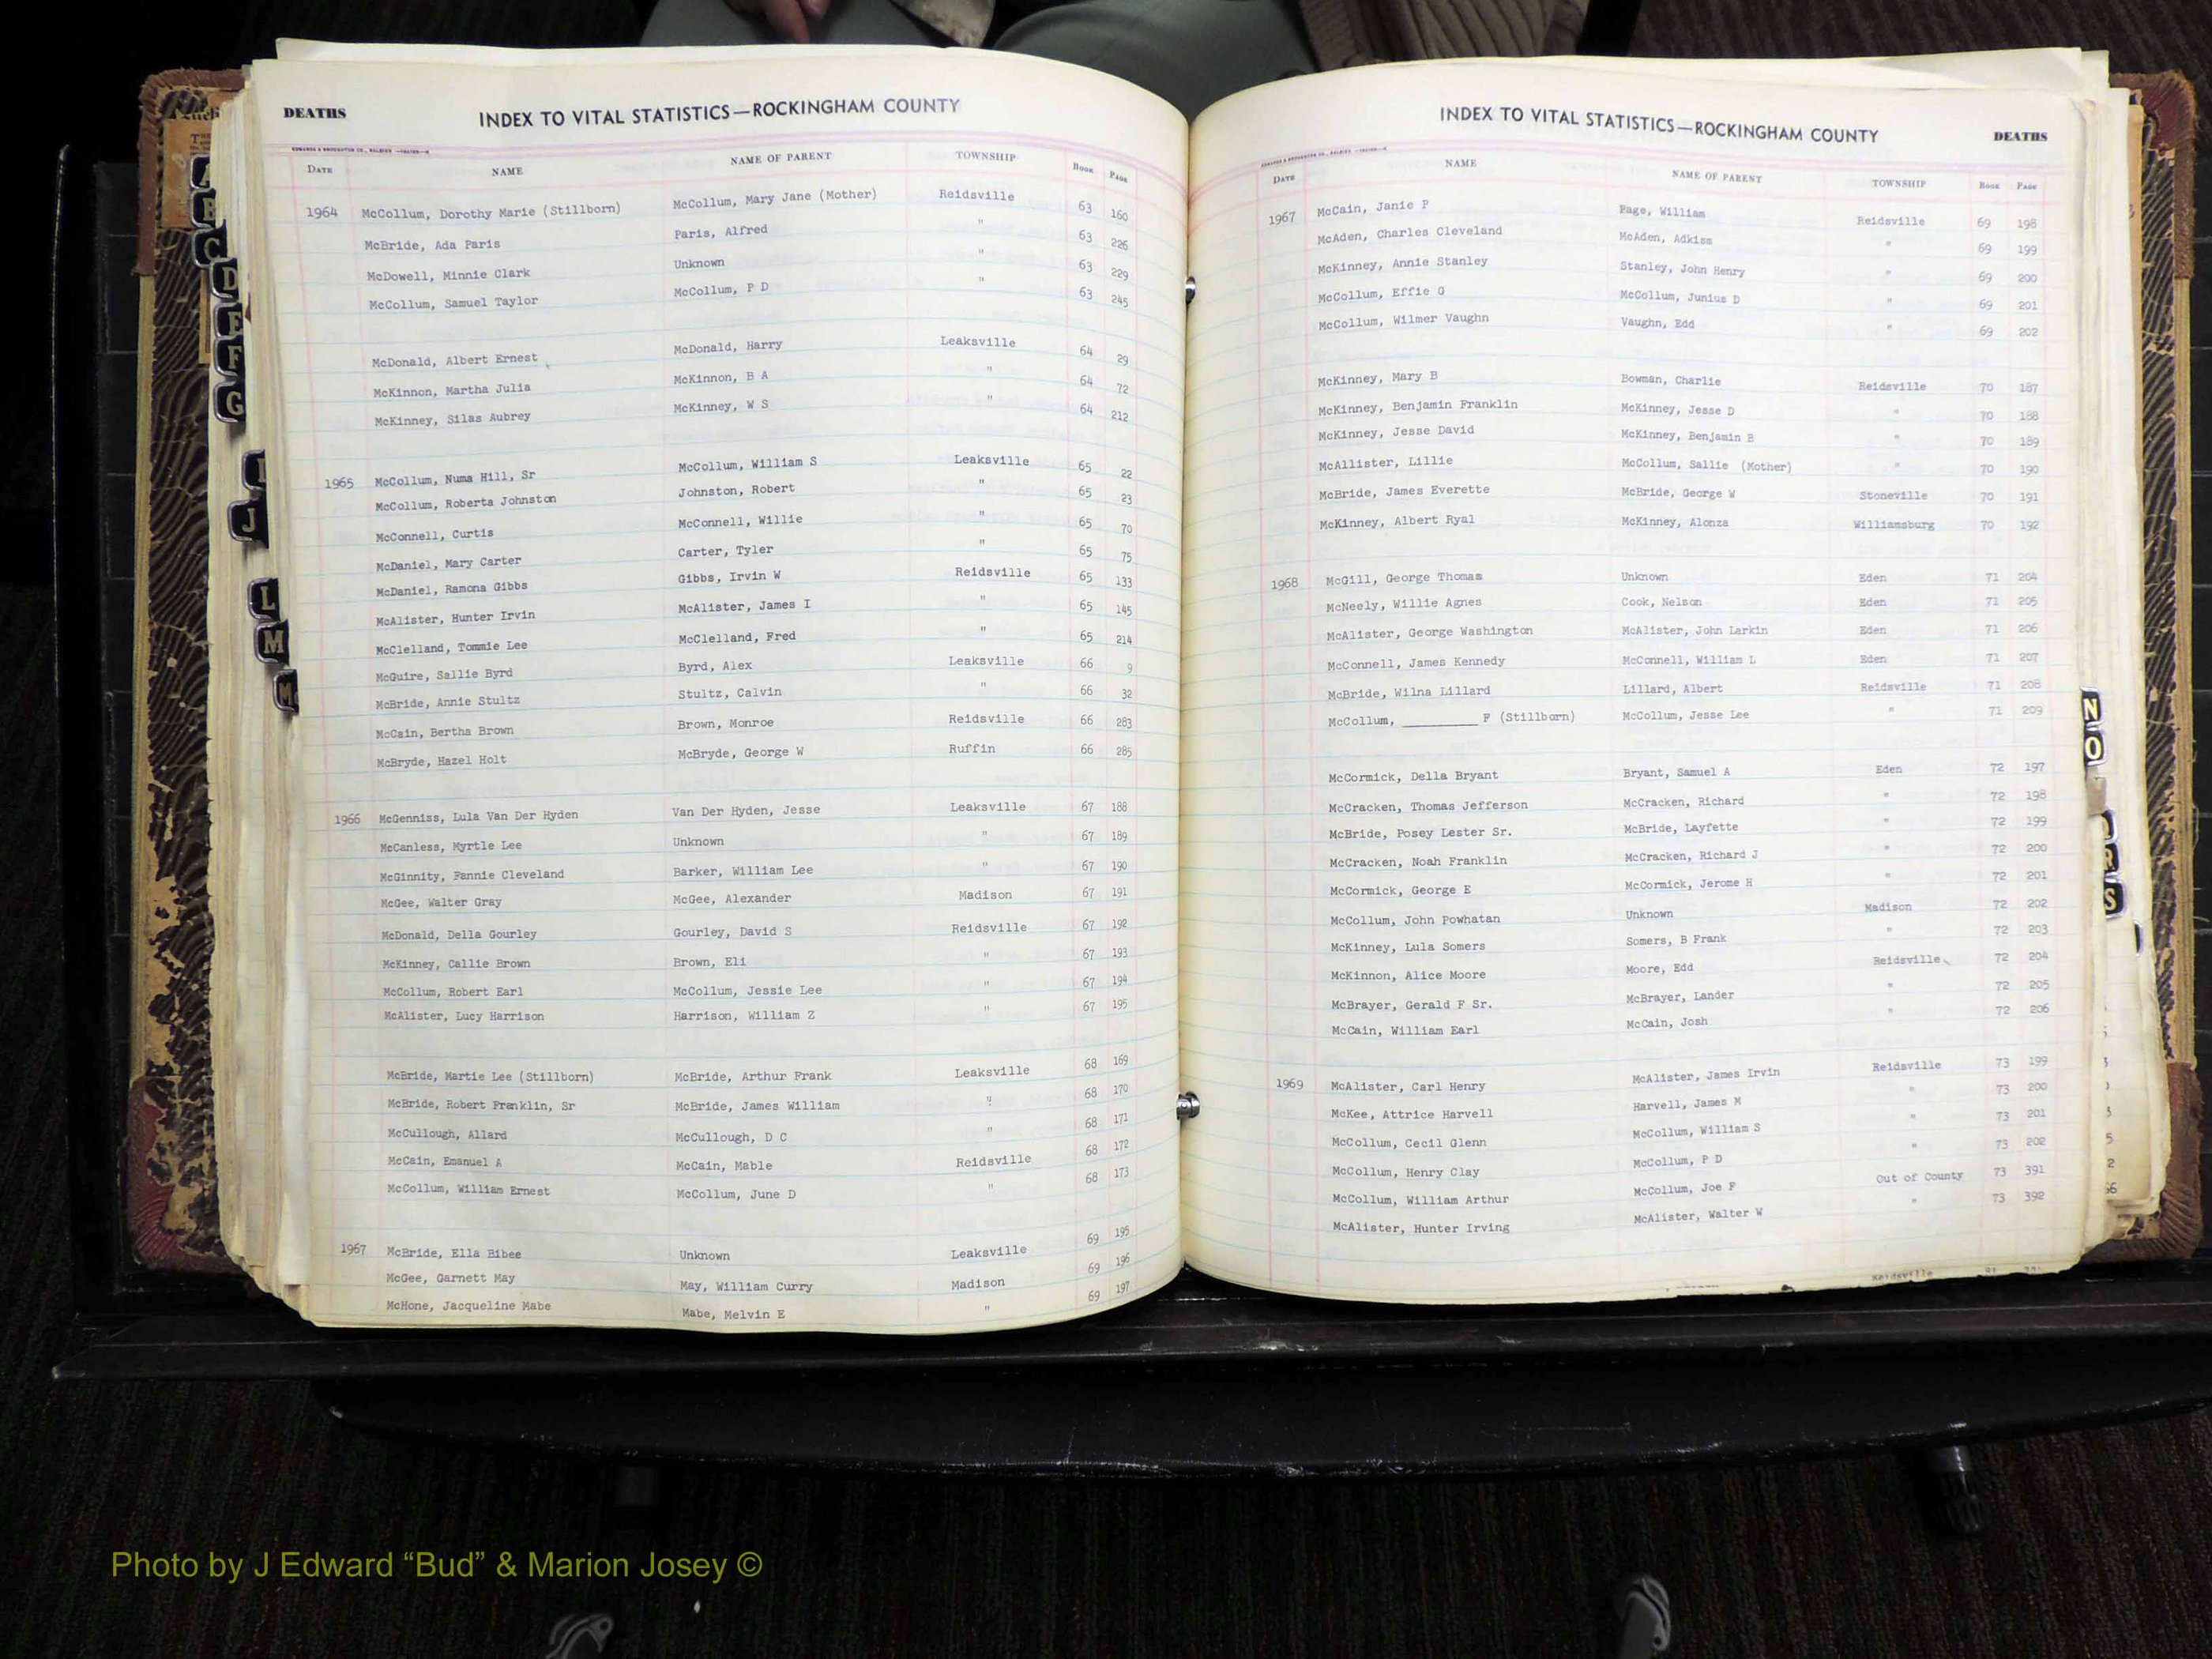 DEATHS
INDEX TO VITAL STATISTICS—ROCKINGHAM COUNTY
DATE NAME NAME OF PARENT TOWNSHIP BOOK PAGE
1964 McCollum, Dorothy Marie (Stillborn) McCollum, Mary Jane (Mother) Reidsville 63 160
McBride, Ada Paris Paris, Alfred " 63 226
McDowell, Minnie Clark Unknown " 63 229
McCollum, Samuel Taylor McCollum, P D " 63 245
McDonald, Albert Ernest McDonald, Harry Leaksville 64 29
McKinnon, Martha Julia McKinnon, B A " 64 72
McKinney, Silas Aubrey McKinney, W S " 64 212
1965 McCollum, Numa Hill, Sr McCollum, William S Leaksville 65 22
McCollum, Roberta Johnston Johnston, Robert " 65 23
McConnell, Curtis McConnell, Willie " 65 70
McDaniel, Mary Carter Carter, Tyler " 65 75
McDaniel, Ramona Gibbs Gibbs, Irvin W Reidsville 65 133
McAlister, Hunter Irvin McAlister, James I " 65 145
McClelland, Tommie Lee McClelland, Fred " 65 214
McGuire, Sallie Byrd Byrd, Alex Leaksville 66 9
McBride, Annie Stultz Stultz, Calvin " 66 32
McCain, Bertha Brown Brown, Monroe Reidsville 66 283
McBryde, Hazel Holt McBryde, George W Ruffin 66 285
1966 McGenniss, Lula Van Der Hyden Van Der Hyden, Jesse Leaksville 67 188
McCanless, Myrtle Lee Unknown " 67 189
McGinnity, Fannie Cleveland Barker, William Lee " 67 190
McGee, Walter Gray McGee, Alexander Madison 67 191
McDonald, Della Gourley Gourley, David S Reidsville 67 192
McKinney, Callie Brown Brown, Eli " 67 193
McCollum, Robert Earl McCollum, Jessie Lee " 67 194
McAlister, Lucy Harrison Harrison, William Z " 67 195
McBride, Martie Lee (Stillborn) McBride, Arthur Frank Leaksville 68 169
McBride, Robert Franklin, Sr McBride, James William " 68 170
McCullough, Allard McCullough, D C " 68 171
McCain, Emanuel A McCain, Mable Reidsville 68 172
McCollum, William Ernest McCollum, June D " 68 173
1967 McBride, Ella Bibee Unknown Leaksville 69 195
McGee, Garnett May May, William Curry Madison 69 196
McHone, Jacqueline Mabe Mabe, Melvin E " 69 197
INDEX TO VITAL STATISTICS—ROCKINGHAM COUNTY
DEATHS
DATE NAME NAME OF PARENT TOWNSHIP BOOK PAGE
1967 McCain, Janie P Page, William Reidsville 69 198
McAden, Charles Cleveland McAden, Adkism " 69 199
McKinney, Annie Stanley Stanley, John Henry " 69 200
McCollum, Effie G McCollum, Junius D " 69 201
McCollum, Wilmer Vaughn Vaughn, Edd " 69 202
McKinney, Mary B Bowman, Charlie Reidsville 70 187
McKinney, Benjamin Franklin McKinney, Jesse D " 70 188
McKinney, Jesse David McKinney, Benjamin B " 70 189
McAllister, Lillie McCollum, Sallie (Mother) " 70 190
McBride, James Everette McBride, George W Stoneville 70 191
McKinney, Albert Ryal McKinney, Alonza Williamsburg 70 192
1968 McGill, George Thomas Unknown Eden 71 204
McNeely, Willie Agnes Cook, Nelson Eden 71 205
McAlister, George Washington McAlister, John Larkin Eden 71 206
McConnell, James Kennedy McConnell, William L Eden 71 207
McBride, Wilna Lillard Lillard, Albert Reidsville 71 208
McCollum, __________ F (Stillborn) McCollum, Jesse Lee " 71 209
McCormick, Della Bryant Bryant, Samuel A Eden 72 197
McCracken, Thomas Jefferson McCracken, Richard " 72 198
McBride, Posey Lester Sr. McBride, Layfette " 72 199
McCracken, Noah Franklin McCracken, Richard J " 72 200
McCormick, George E McCormick, Jerome H " 72 201
McCollum, John Powhatan Unknown Madison 72 202
McKinney, Lula Somers Somers, B Frank " 72 203
McKinnon, Alice Moore Moore, Edd Reidsville 72 204
McBrayer, Gerald F Sr. McBrayer, Lander " 72 205
McCain, William Earl McCain, Josh " 72 206
1969 McAlister, Carl Henry McAlister, James Irvin Reidsville 73 199
McKee, Attrice Harvell Harvell, James M " 73 200
McCollum, Cecil Glenn McCollum, William S " 73 201
McCollum, Henry Clay McCollum, P D " 73 202
McCollum, William Arthur McCollum, Joe F Out of County 73 391
McAlister, Hunter Irving McAlister, Walter W " 73 392
A
B
C
D
E
F
G
I
J
L
M
N
O
R
S
Photo by J Edward “Bud” & Marion Josey ©